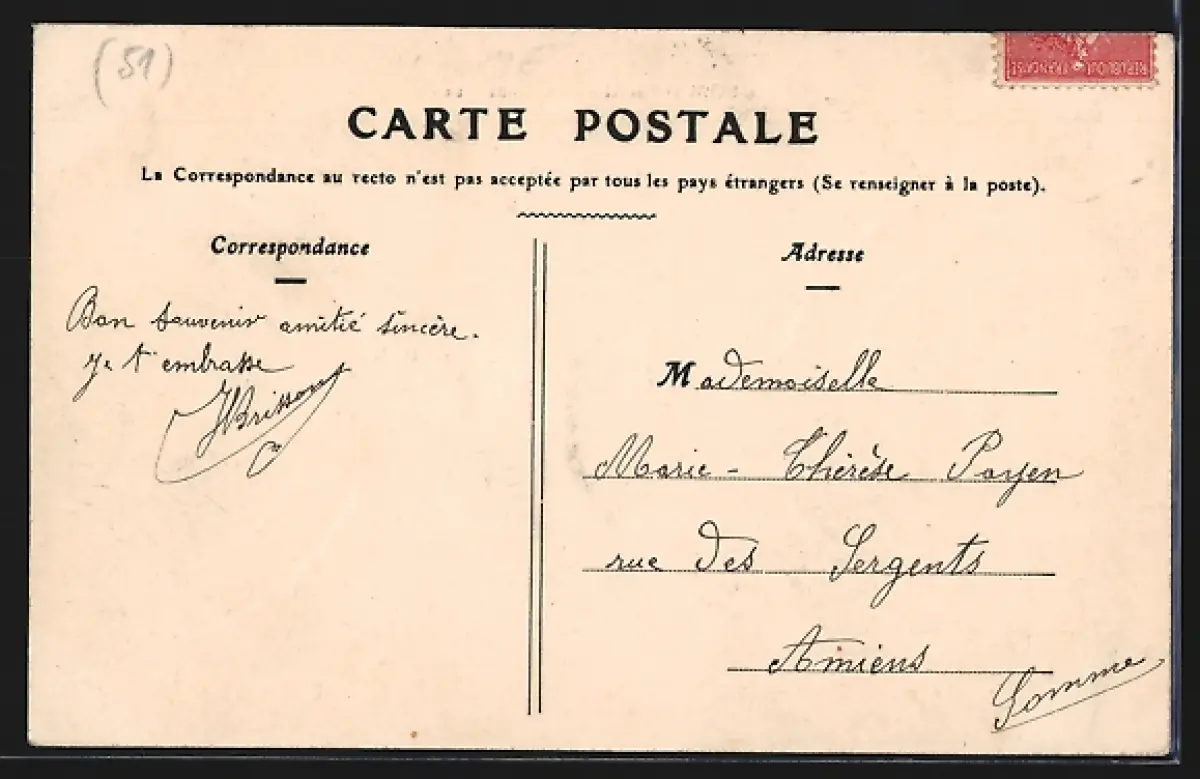 (51)
REPUBLIQUE FRANÇAISE
CARTE POSTALE
La Correspondance au recto n'est pas acceptée par tous les pays étrangers (Se renseigner à la poste).
Correspondance
Bon souvenir amitié sincère.
Je t'embrasse
Adresse
Mademoiselle
Marie-Thérèse Payen
rue des Sergents
Amiens
Somme